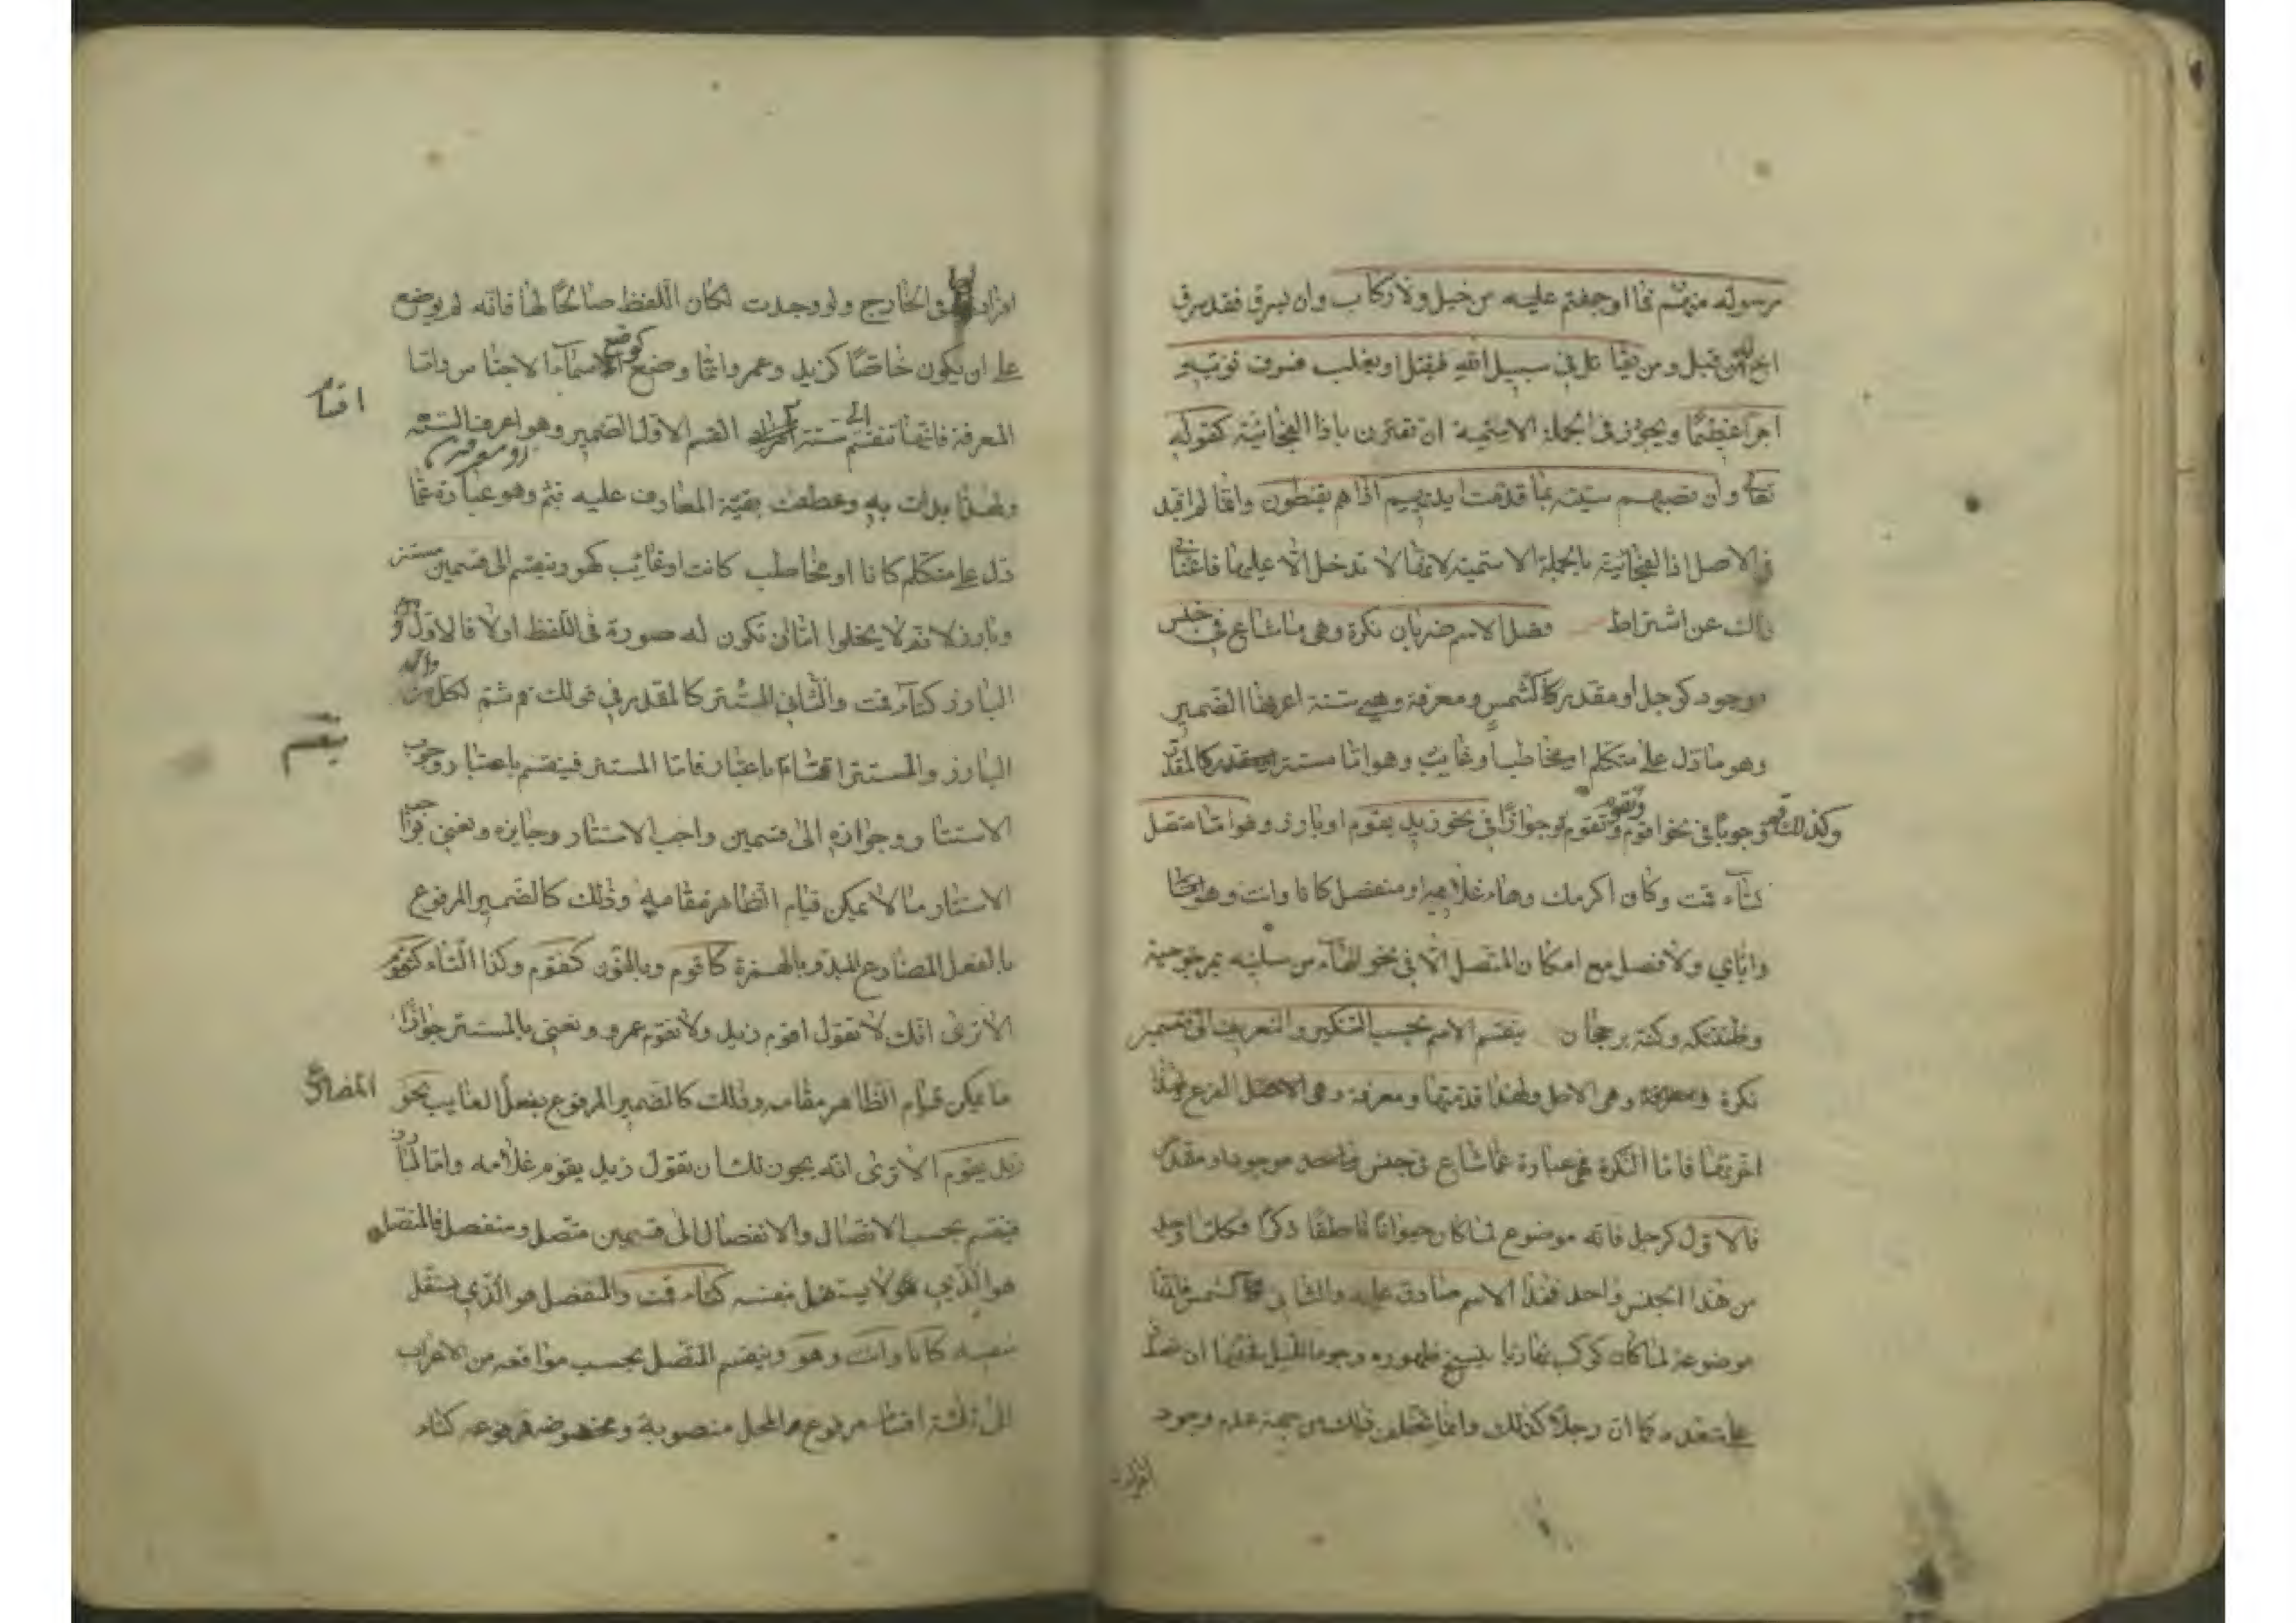 رسوله منهم فما اوجفتم عليه من خيل ولا ركاب وان يسرق فقد سرق
اخ له من قبل ومن يقاتل فى سبيل الله فيقتل او يغلب فسوف نؤتيه
اجرا عظيما ويجوز فى الجملة الاسمية ان تقترن باذا الفجائية كقوله
تعالى وان تصبهم سيئة بما قدمت ايديهم اذا هم يقنطون وانما لم اقيد
فى الاصل اذا الفجائية بالجملة الاسمية لانها لا تدخل الا عليها فاغنانى
ذلك عن اشتراط فصل الاسم ضربان نكرة وهى ما شاع فى جنس
موجود كرجل او مقدر كشمس ومعرفة وهى ستة اعرفها الضمير
وهو ما دل على متكلم او مخاطب او غايب وهو اما مستتر كالمقدر
وجوبا فى نحو اقوم ونقوم وجوازا فى نحو زيد يقوم او بارز وهو اما متصل
كتاء قمت وكاف اكرمك وهاء غلامه او منفصل كانا وانت وهو
واياي ولا فصل مع امكان المتصل الا فى نحو الهاء من سلنيه بمرجوحية
وظننتكه وكنته برجحان ينقسم الاسم بحسب التنكير والتعريف الى قسمين
نكرة وهى الاصل ولهذا قدمتها ومعرفة وهى الفرع ولهذا
اخرتها فاما النكرة فهى عبارة عما شاع فى جنس موجود او مقدر
فالاول كرجل فانه موضوع لما كان حيوانا ناطقا ذكرا فكلما وجد
من هذا الجنس واحد فهذا الاسم صادق عليه والثانى كشمس فانها
موضوعة لما كان كوكبا نهاريا ينسخ ظهوره وجود الليل فحقها ان تصدق
على متعدد كما ان رجلا كذلك وانما تخلف ذلك من جهة عدم وجود
افراد
افراد فى الخارج ولو وجدت لكان اللفظ صالحا لها فانه لم يوضع
على ان يكون خاصا كزيد وعمر وانما وضع كوضع الاسماء الاجناس واما
المعرفة فانها تنقسم الى ستة اقسام القسم الاول الضمير وهو اعرف الستة
ولهذا بدات به وعطفت بقية المعارف عليه بثم وهو عبارة عما
دل على متكلم كانا او مخاطب كانت او غائب كهو وينقسم الى قسمين مستتر
وبارز لانه لا يخلوا اما ان تكون له صورة فى اللفظ او لا فالاول
البارز كتاء قمت والثانى المستتر كالمقدر فى قولك قم ثم لكل من
البارز والمستتر انقسام باعتبار فاما المستتر فينقسم باعتبار وجوب
الاستتار وجوازه الى قسمين واجب الاستتار وجايزه ونعنى بواجب
الاستتار ما لا يمكن قيام الظاهر مقامه وذلك كالضمير المرفوع
بالفعل المضارع المبدو بالهمزة كاقوم وبالنون كنقوم وكذا التاء كتقوم
الا ترى انك لا تقول اقوم زيد ولا نقوم عمرو ونعنى بالمستتر جوازا
ما يمكن قيام الظاهر مقامه وذلك كالضمير المرفوع بفعل الغايب نحو
زيد يقوم الا ترى انه يجوز لك ان تقول زيد يقوم غلامه واما البارز
فينقسم بحسب الاتصال والانفصال الى قسمين متصل ومنفصل فالمتصل
هو الذي لا يستقل بنفسه كتاء قمت والمنفصل هو الذي يستقل
بنفسه كانا وانت وهو وينقسم المتصل بحسب مواقعه من الاعراب
الى ثلثة اقسام مرفوع المحل منصوبة ومخفوضه فمرفوعه كتاء